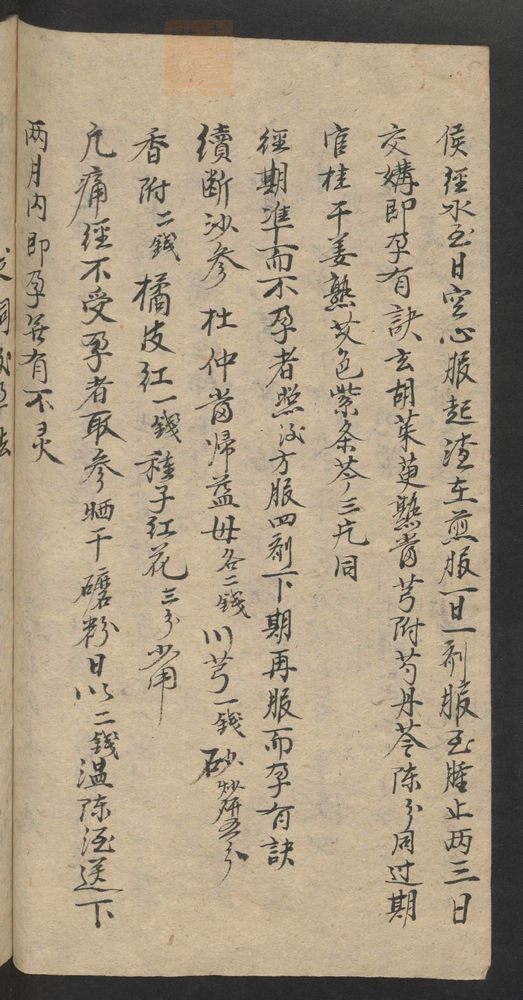 侯經水至日空心服起渣在煎服一日一剤服至腫止两三日
交媾即孕有訣玄胡茱萸熟當芎附芍丹苓陈分同过期
官桂干姜熟艾色紫条芩三片同
經期準而不孕者照次方服四剤下期再服而孕有訣
續断沙参杜仲當歸益母各二錢川芎一錢砂炒研五分
香附二錢橘皮紅一錢種子红花三分少用
凢痛經不受孕者取参晒干磨粉日以二錢温陈酒送下
两月内即孕若有不灵